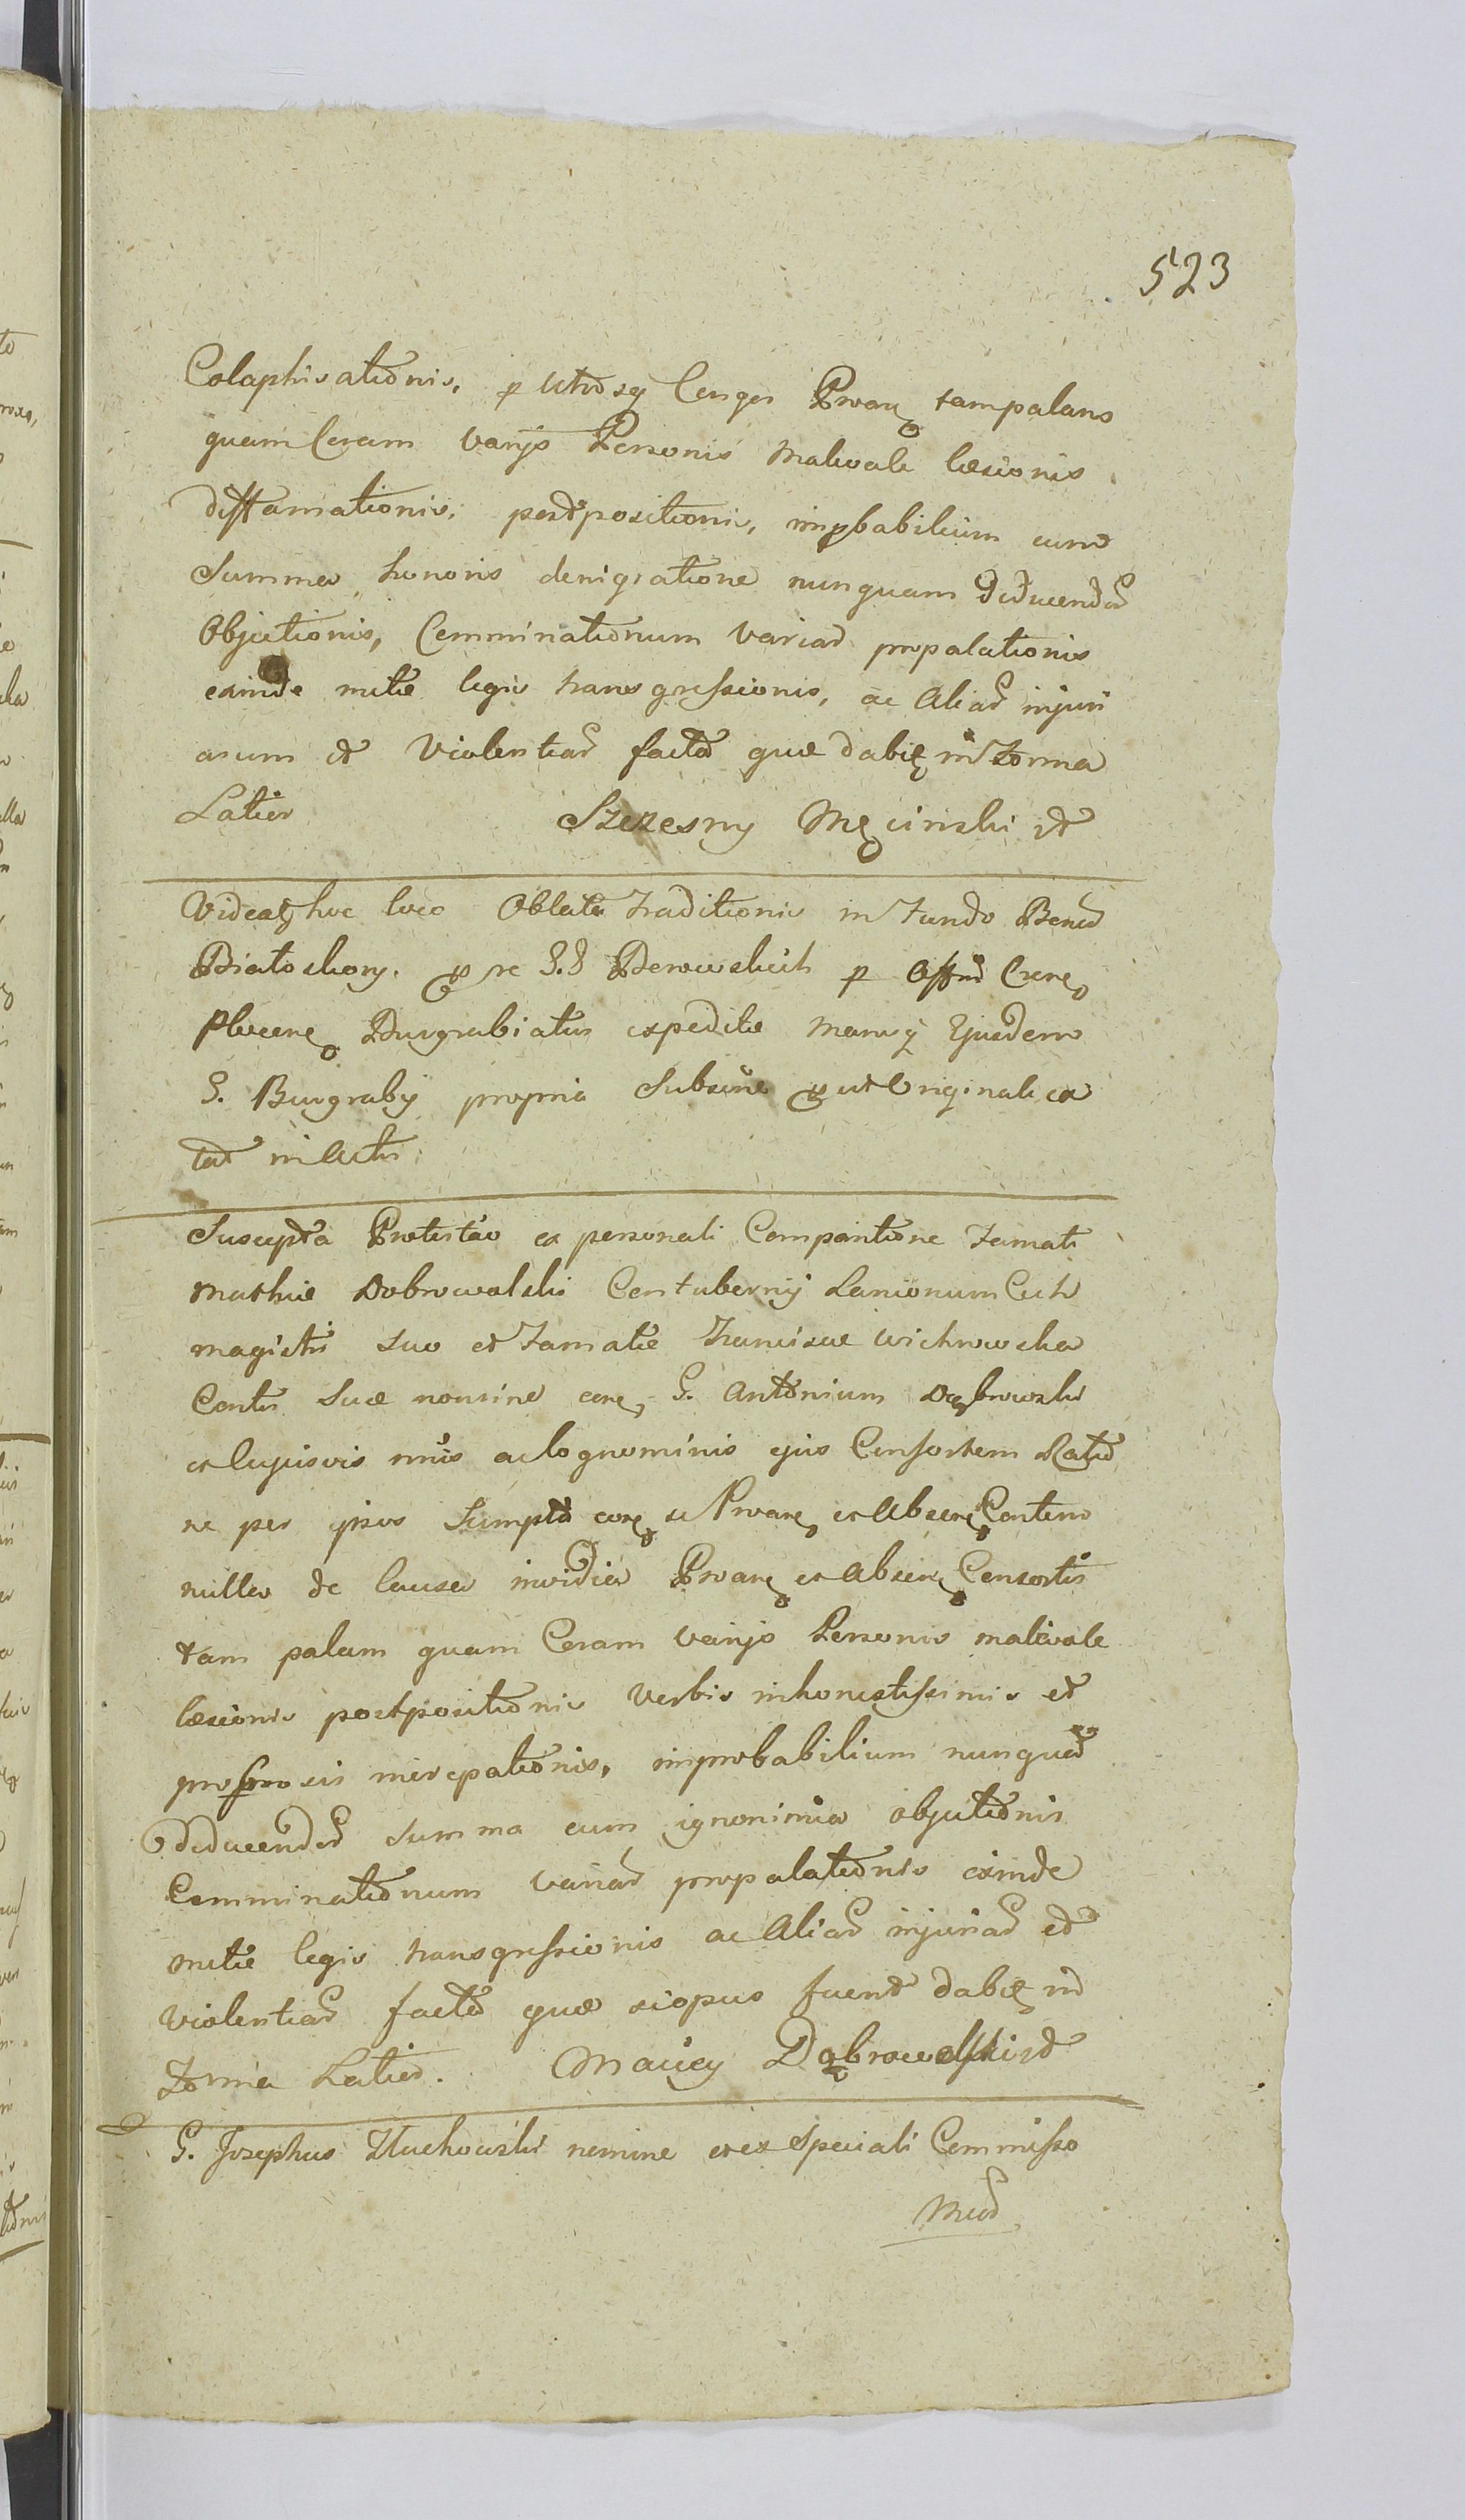 523
Colaphisationis, p Utrosq Conges Prnarų tampalans
quam Coram varijs Personis Malevole læsionis
diffamationis, postpositionis, improbabilium cum
Summa honoris denigratione nunquam Deducendar
Objectionis, Comminationum variar propalationis
exinde mulctæ legis transgressionis, ac Aliar injuri
arum et Violentiar facta quæ dabit in Forma
Latior Szczesny Męcinski id
Videatq hoc loco Oblata Traditionis in Fundo Bonor
Białoskory. re G.G p Offm
Plocen Burgrabiatus expeditæ Manuq Ejusdem
G. Burgrabij propria Subscrie et ut Originale ex
tat in Actis.
Suscepta Protestao ex personali Comparitione Famati
Mathiæ Dobrowolski Contubernij Lanionum Cech
magistri suo et Famatæ Franciscæ Wichrowska
Contis Suæ nomine con G. Antonium Dąbrowski
et Cujusvis nnis ac Cognominis ejus Consortem Ratio
ne per ipsos Sumpta se Prnare et Absen Contem
nulla de Causa invidia Prnarų et Absen Consortis
tam palam quam Coram varijs Personis malevole
læsionis postpositionis Verbis inhonestissimis et
probrosis increpationis, improbabilium nunquam
deducendar summa cum ignonimia objectionis
Comminationum variar propalationis exinde
mulctæ legis transgressionis ac Aliar injuriar et
violentiar facta quæ siopus fuerit dabit in
Forma Latior. Maciey Dąbrowolski id
G. Josephus Tłuchowski nomine et ex Speciali Commisso
Mcor